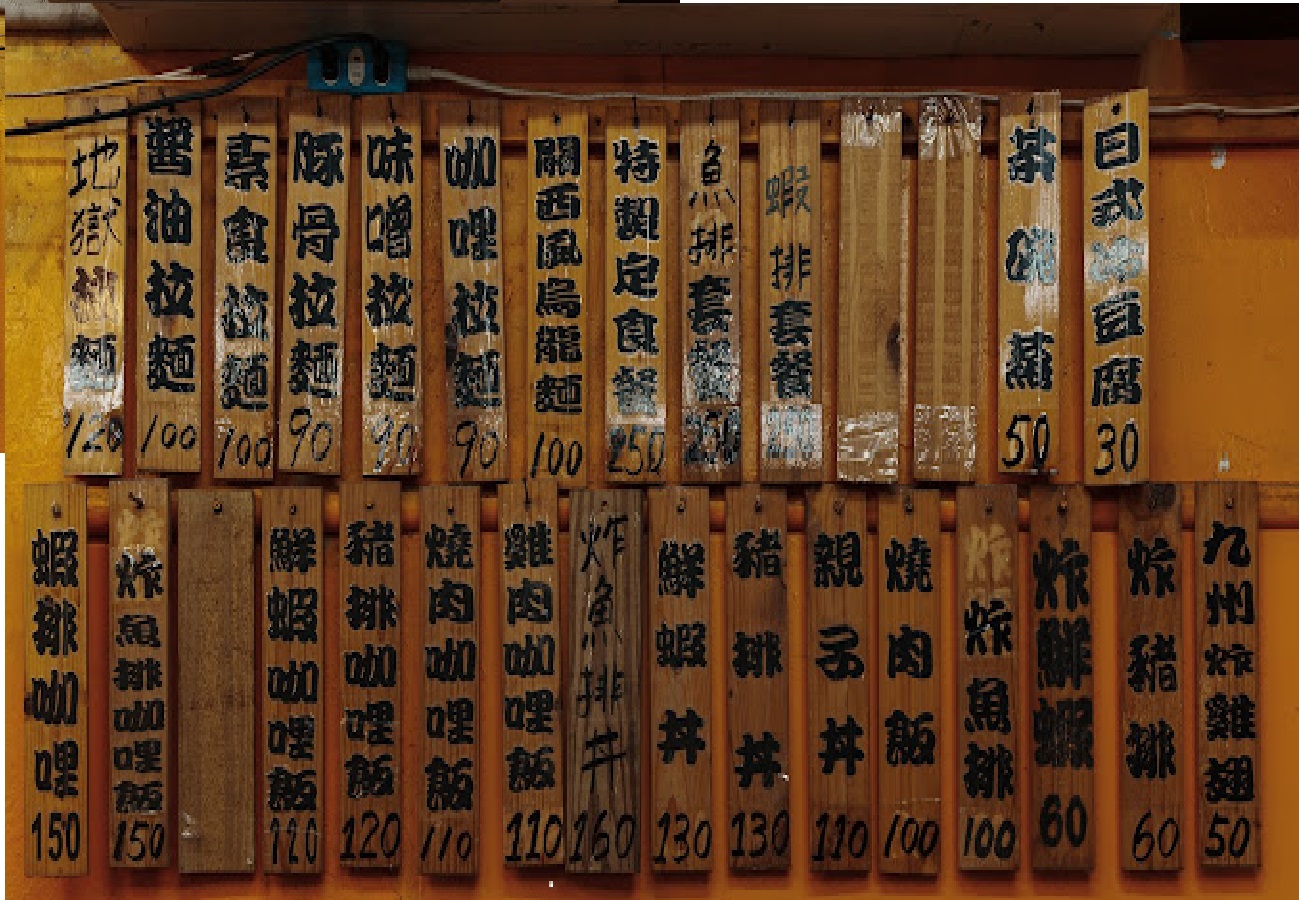 地獄拉麵120
醬油拉麵100
素食拉麵100
豚骨拉麵90
味噌拉麵90
咖哩拉麵90
關西風烏龍麵100
特製定食餐250
魚排套餐250
蝦排套餐
茶碗蒸50
日式豆腐30
蝦排咖哩150
炸魚排咖哩飯150
鮮蝦咖哩飯
豬排咖哩飯120
燒肉咖哩飯110
雞肉咖哩飯110
炸魚排丼160
鮮蝦丼130
豬排丼130
親子丼110
燒肉飯100
炸魚排100
炸鮮蝦60
炸豬排60
九州炸雞翅50